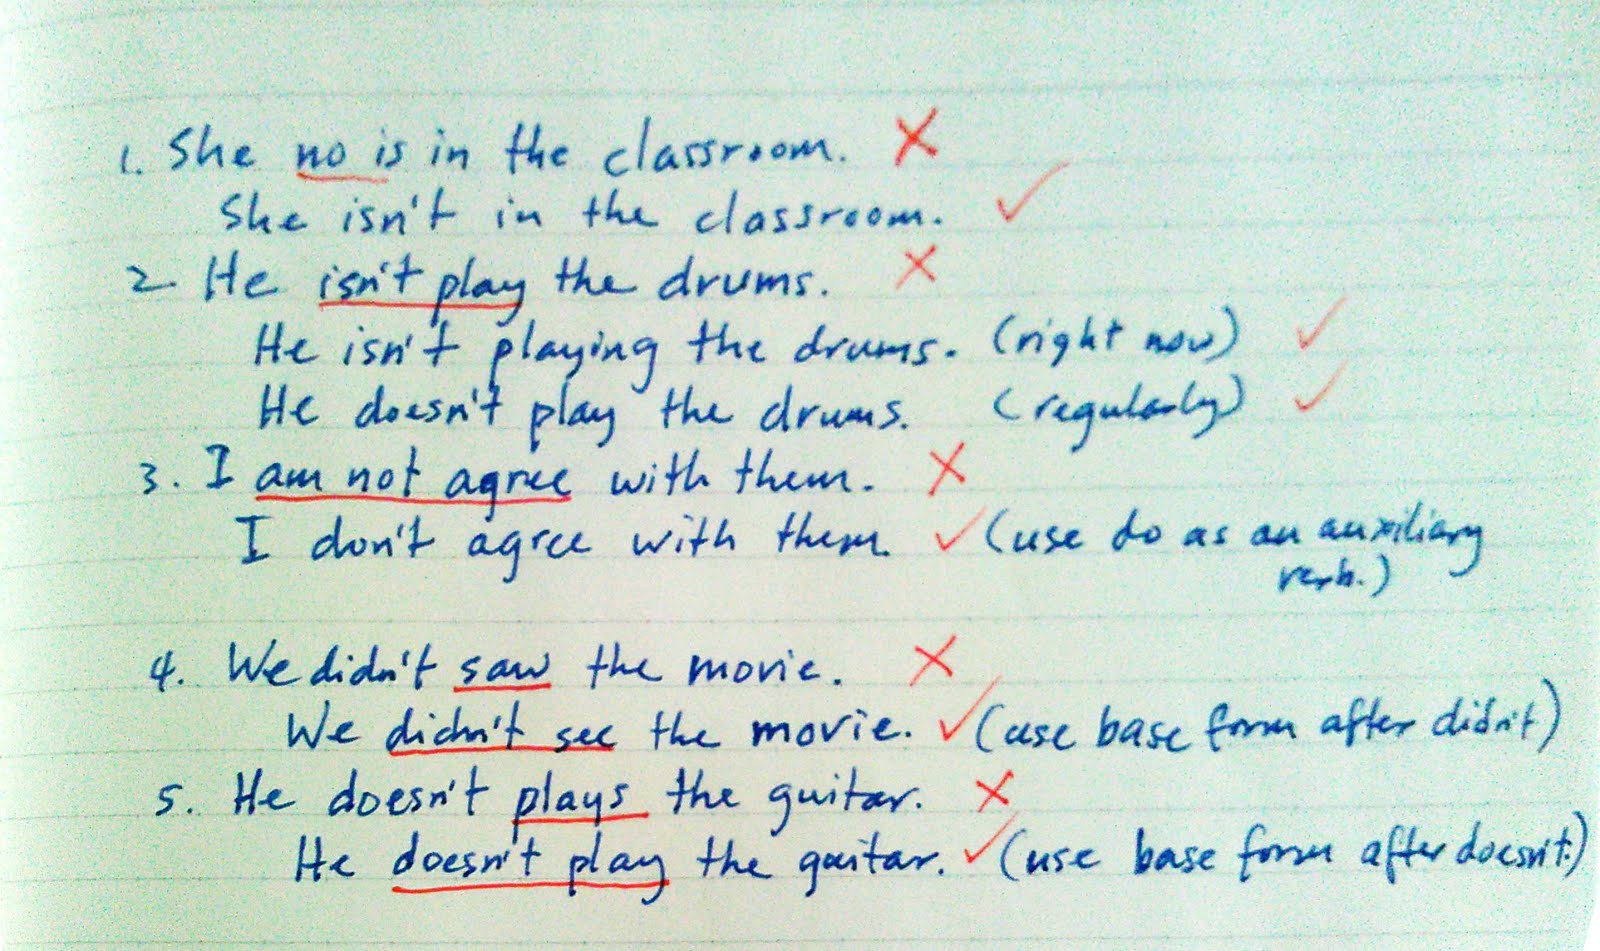 1. She no is in the classroom. ✗
She isn't in the classroom. ✓
2 He isn't play the drums. ✗
He isn't playing the drums. (right now) ✓
He doesn't play the drums. (regularly) ✓
3. I am not agree with them. ✗
I don't agree with them. ✓ (use do as an auxiliary
verb.)
4. We didn't saw the movie. ✗
We didn't see the movie. ✓ (use base form after didn't)
5. He doesn't plays the guitar. ✗
He doesn't play the guitar. ✓ (use base form after doesn't.)